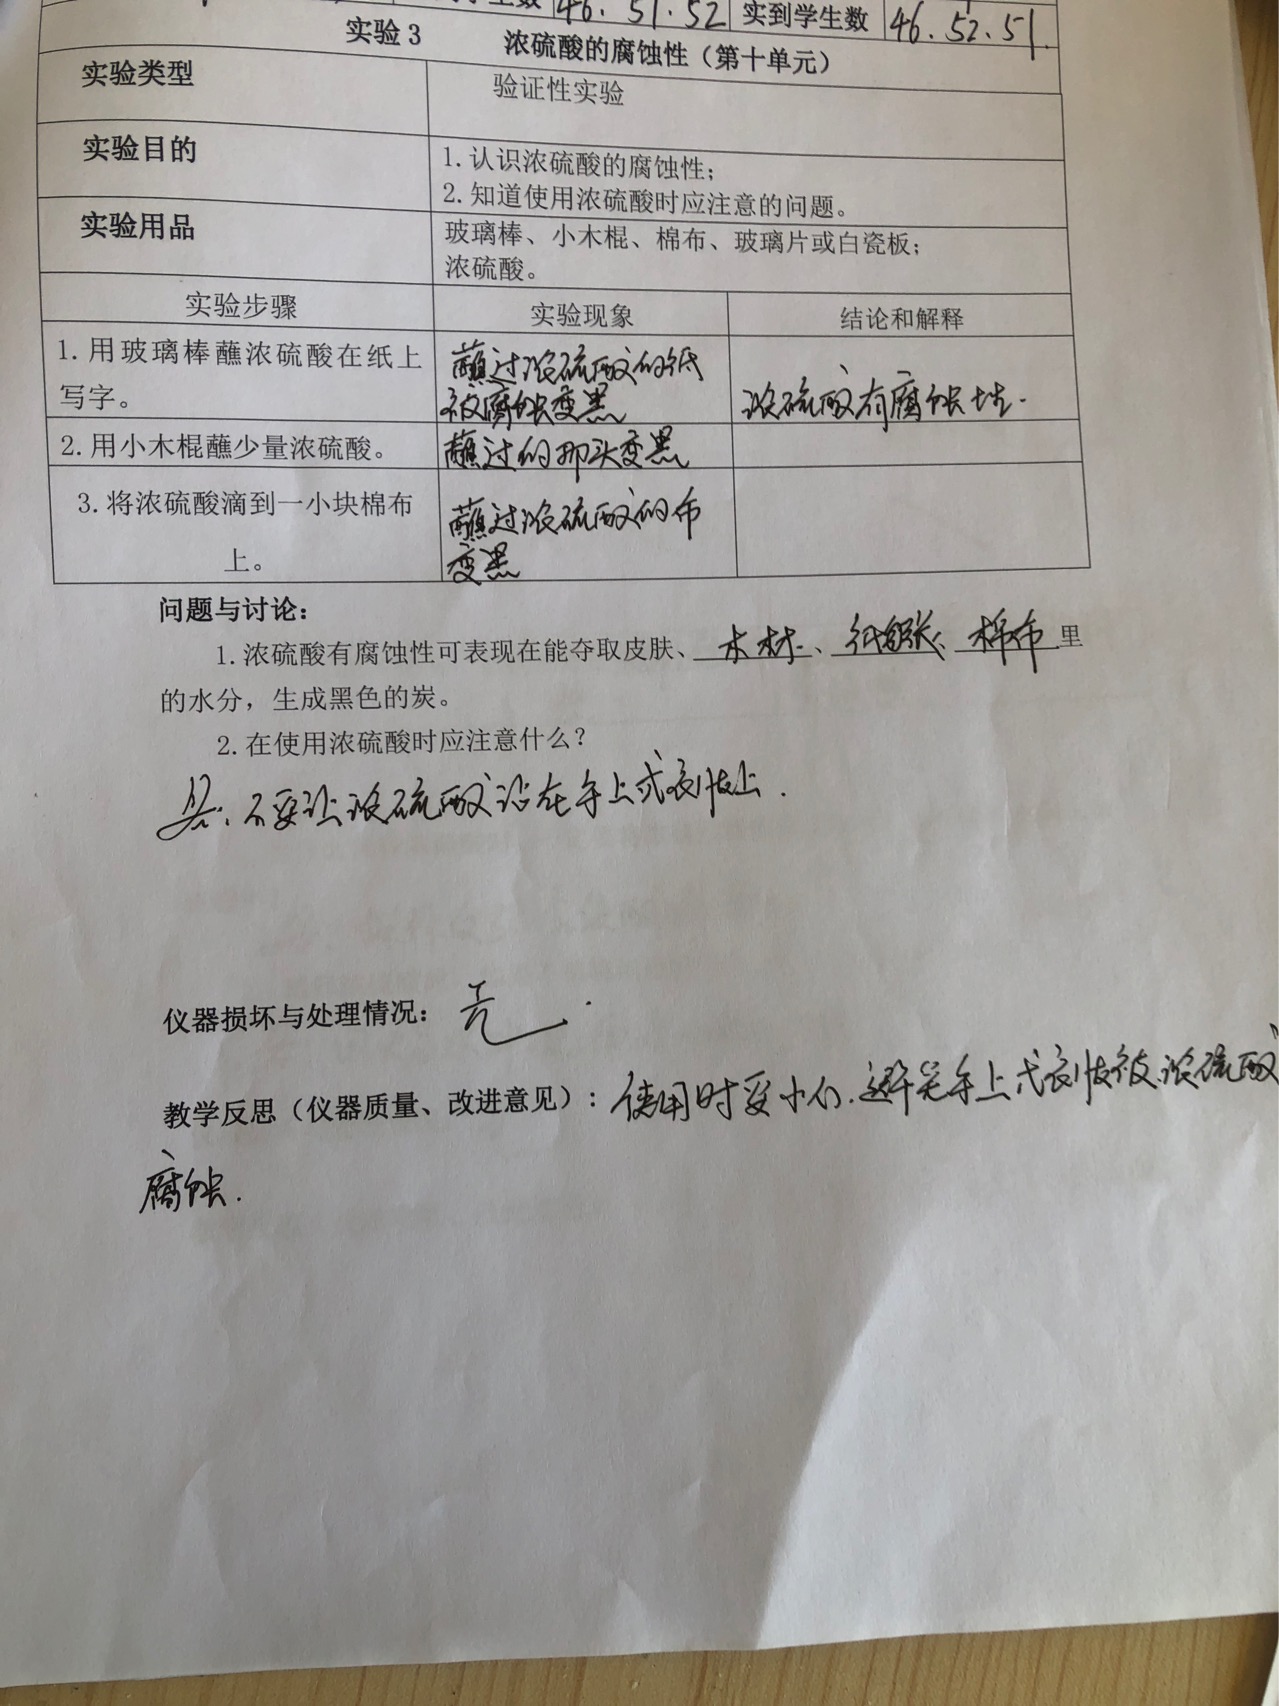 学生数 46. 51. 52 实到学生数 46. 52. 51.
实验3 浓硫酸的腐蚀性（第十单元）
实验类型 验证性实验
实验目的 1.认识浓硫酸的腐蚀性；
2.知道使用浓硫酸时应注意的问题。
实验用品 玻璃棒、小木棍、棉布、玻璃片或白瓷板；
浓硫酸。
实验步骤 实验现象 结论和解释
1.用玻璃棒蘸浓硫酸在纸上 蘸过浓硫酸的纸
写字。 被腐蚀变黑 浓硫酸有腐蚀性.
2.用小木棍蘸少量浓硫酸。 蘸过的那头变黑
3.将浓硫酸滴到一小块棉布 蘸过浓硫酸的布
上。 变黑
问题与讨论：
1.浓硫酸有腐蚀性可表现在能夺取皮肤、木材、纸张、棉布里
的水分，生成黑色的炭。
2.在使用浓硫酸时应注意什么？
答：不要让浓硫酸沾在手上或衣服上.
仪器损坏与处理情况：无.
教学反思（仪器质量、改进意见）：使用时要小心.避免手上或衣服被浓硫酸
腐蚀.